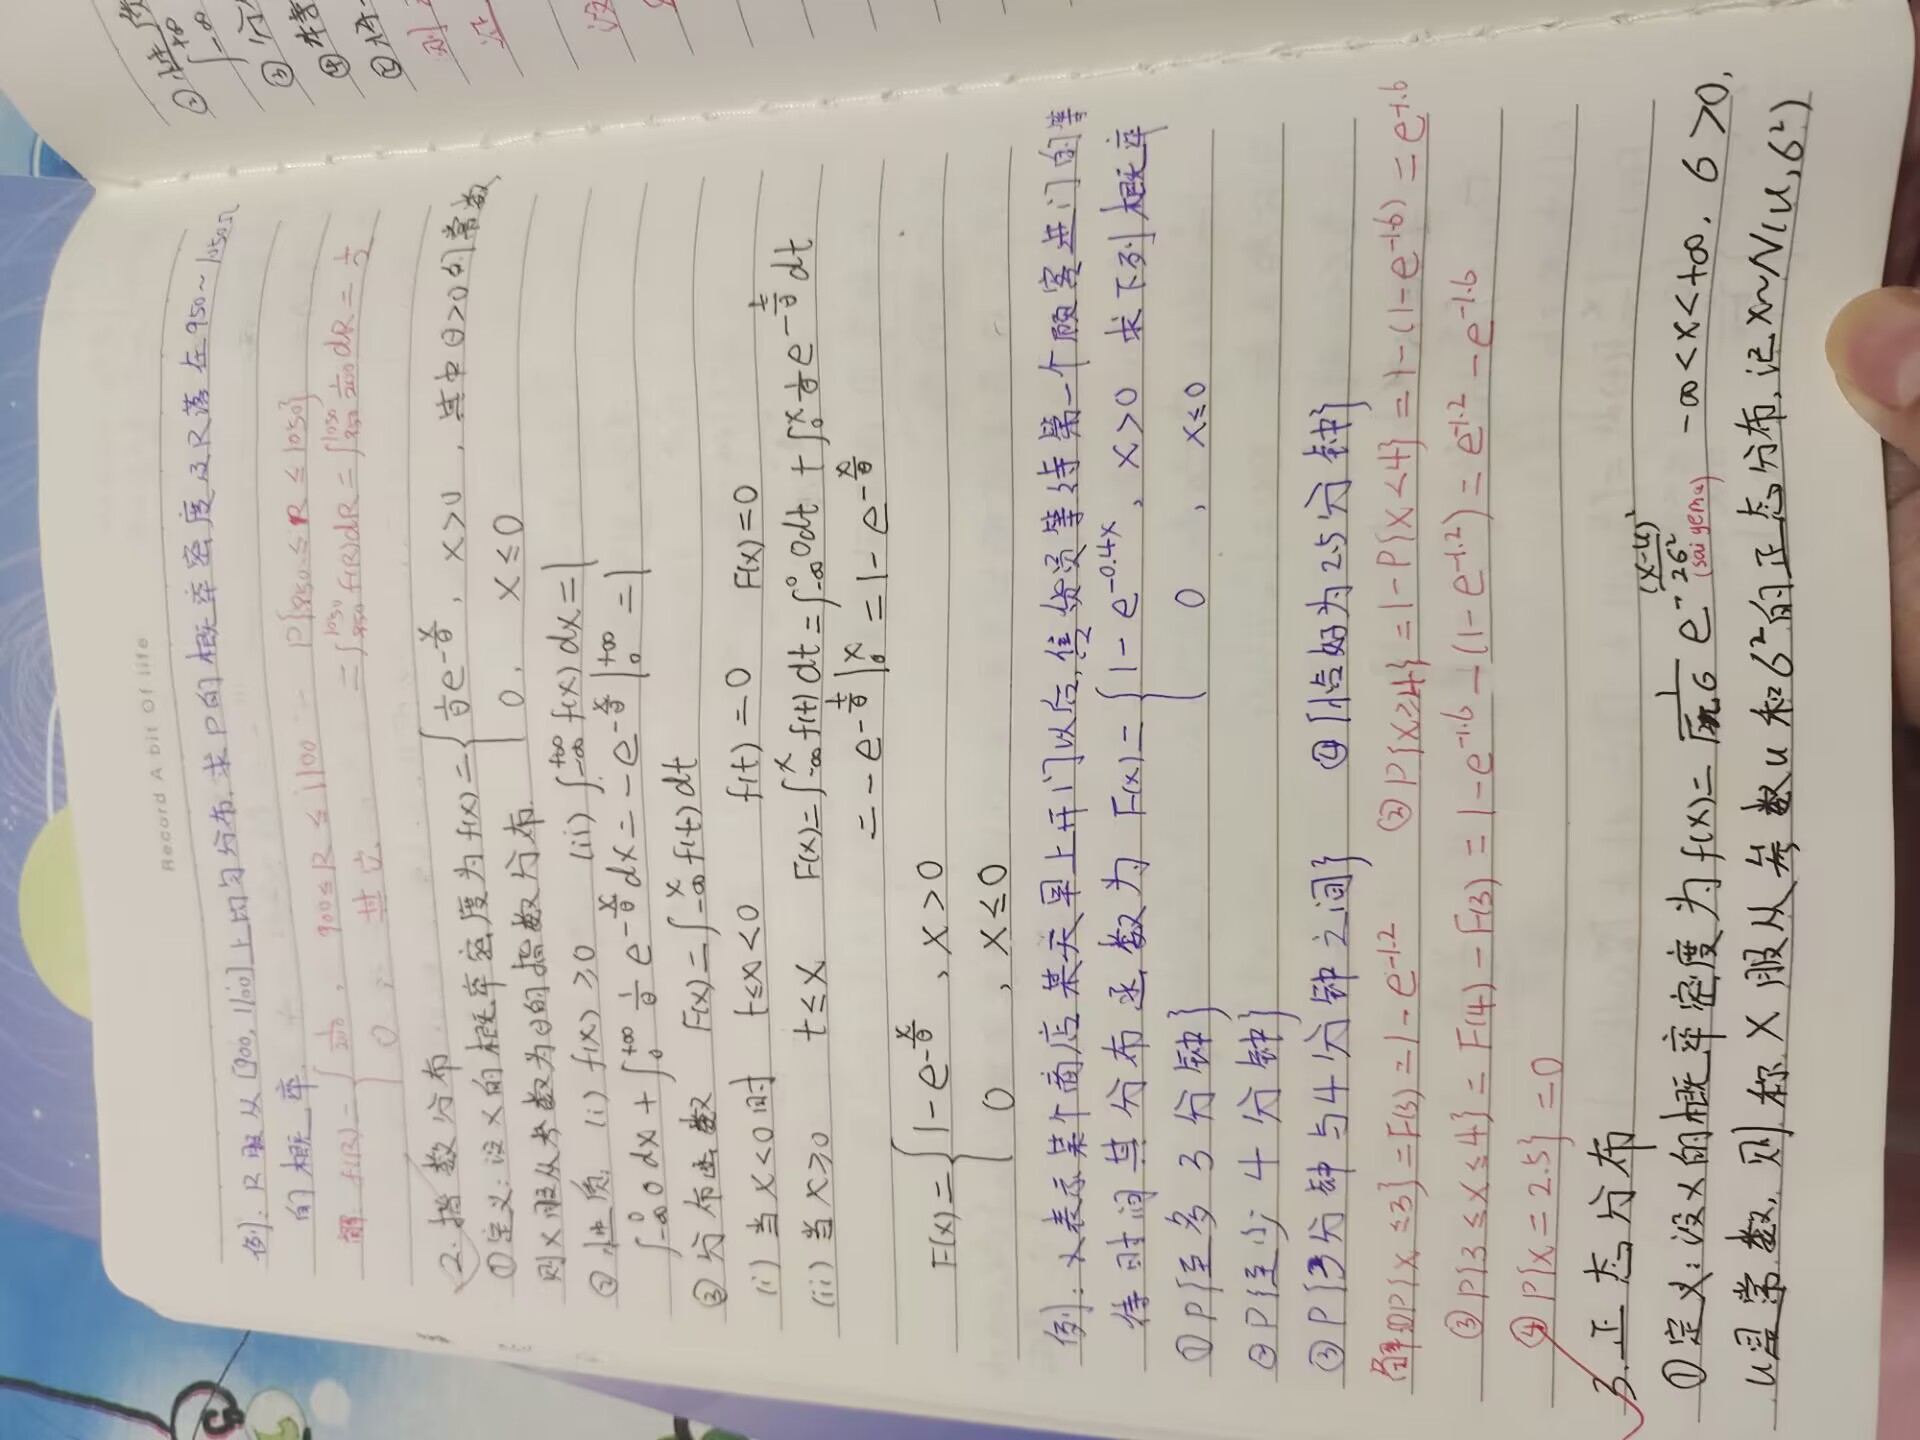 Record A bit Of life
例: R服从[900, 1100]上均匀分布. 求R的概率密度及R落在950~1050Ω
的概率.
解: f(R)={ 1/200 , 900≤R≤1100 P{950≤R≤1050}
0 , 其它 =∫_{950}^{1050} f(R)dR=∫_{950}^{1050} 1/200 dR=1/2
2.指数分布
①定义:设X的概率密度为f(x)={ 1/θ e^{-x/θ}, x>0 , 其中θ>0的常数,
0, x≤0
则X服从参数为θ的指数分布.
②性质. (i) f(x)≥0 (ii) ∫_{-∞}^{+∞} f(x)dx=1
∫_{-∞}^{0} 0dx+∫_{0}^{+∞} 1/θ e^{-x/θ}dx=-e^{-x/θ}|_{0}^{+∞}=1
③分布函数 F(x)=∫_{-∞}^{x} f(t)dt
(i) 当x<0时 t≤x<0 f(t)=0 F(x)=0
(ii) 当x≥0 t≤x F(x)=∫_{-∞}^{x} f(t)dt=∫_{-∞}^{0} 0dt+∫_{0}^{x} 1/θ e^{-t/θ}dt
=-e^{-t/θ}|_{0}^{x}=1-e^{-x/θ}
F(x)={ 1-e^{-x/θ}, x>0
0 , x≤0
例: X表示某个商店某天早上开门以后,售货员等待第一个顾客进门的等
待时间其分布函数为 F(x)={ 1-e^{-0.4x}, x>0 求下列概率
0 , x≤0
①P{至多3分钟}
②P{至少4分钟}
③P{3分钟与4分钟之间} ④{恰好为2.5分钟}
解:①P{X≤3}=F(3)=1-e^{-1.2} ②P{X≥4}=1-P{X<4}=1-(1-e^{-1.6})=e^{-1.6}
③P{3≤X≤4}=F(4)-F(3)=1-e^{-1.6}-(1-e^{-1.2})=e^{-1.2}-e^{-1.6}
④P{X=2.5}=0
3.正态分布
①定义:设X的概率密度为f(x)=1/(√2π б) e^{-(x-u)²/2б²} -∞<x<+∞, б>0,
(saiyema)
u是常数,则称X服从参数u和б²的正态分布,记X~N(u,б²)